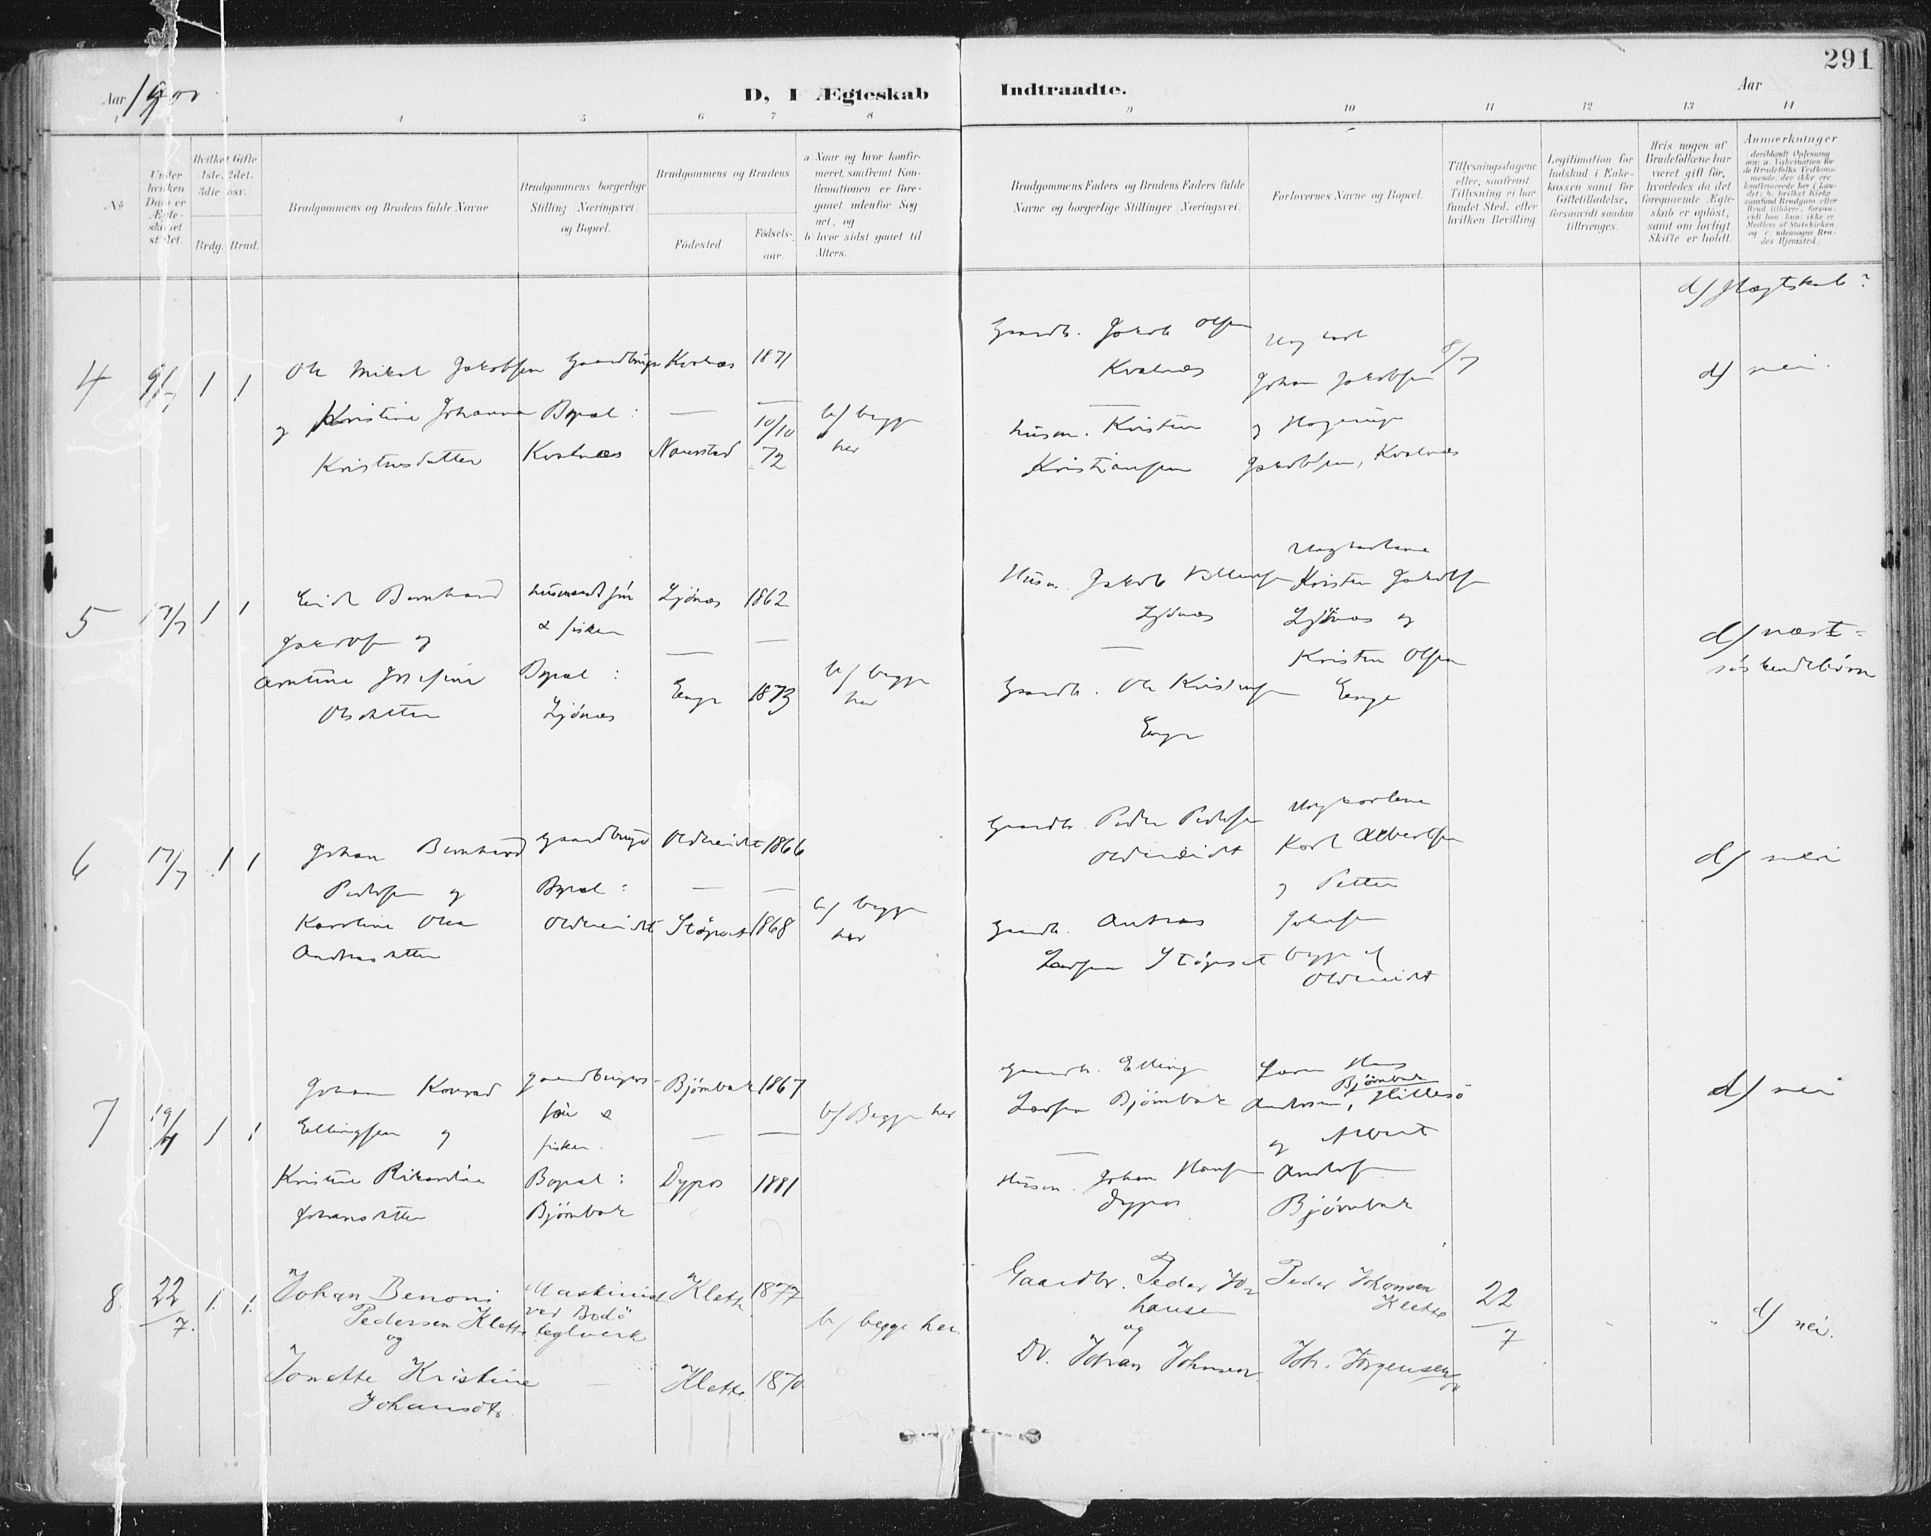 291
Aar 1900
D, I Ægteskab Indtraadte.
Aar
1 3 4 5 6 7 8 9 10 11 12 13 14
No.
Under hvilken Datoer Ægteskabet stiftet.
Hvilket Gifte 1ste, 2det, 3die osv.
Brdg. Brud.
Brudgommens og Brudens fulde Navne
Brudgommens borgerlige Stilling (Næringsvei) og Bopæl.
Brudgommens og Brudens
Fødested.
Fødselsaar.
a Naar og hvor konfirmeret, saafremt Konfirmationen er foregaaet udenfor Sognet, og
b hvor sidst gaaet til Alters.
Brudgommens Faders og Brudens Faders fulde Navne og borgerlige Stillinger (Næringsvei)
Forlovernes Navne og Bopæl.
Tillysningsdagene eller, saafremt Tillysning ei har fundet Sted, efter hvilken Bevilling
Legitimation for Indskud i Enkekassen samt for Giftetilladelse, forsaavidt saadan tiltrænges.
Hvis nogen af Brudefolkene har været gift før, hvorledes da det foregaaende Ægteskab er opløst, samt om lovligt Skifte er holdt.
Anmerkninger
d/ Slægtskab?
4 9/7 1 1
Ole Mikal Jakobsen
og Kristine Johanna
Kristensdatter
Gaardbruger
Bopæl:
Kvalnæs
Kvalnæs 1871
10/10 72
b/ begge
her
Gaardb. Jakob Olsen
Kvalnæs
Husm. Kristen
Kristiansen
Ungkarl
Johan Jakobsen
og Hagerup
Jakobsen, Kvalnæs
8/7
d/ nei.
5 17/7 1 1
Erik Bernhard
Jakobsen og
Arntine Josefine
Olsdatter
Husmandssøn
& fisker
Bopæl:
Ljønæs
Ljønæs 1862
Enge 1873
b/ begge
her
Husm. Jakob Villumsen
Ljønæs
Gaardb. Ole Kristensen
Enge
Ungkarlene
Kristen Jakobsen
Ljønæs og
Kristen Olsen
Enge
d/ næst=
søskendebørn
6 17/7 1 1
Johan Bernhard
Pedersen og
Karoline Olea
Andreasdatter
Gaardbruger
Bopæl:
Oldereidet
Oldereidet 1866
Støpset 1868
b/ begge
her
Gaardb. Peder Pedersen
Oldereidet
Gaardb. Andreas
Larsen Støpset
Ungkarlene
Karl Albertsen
og Petter
Johnsen
begge af
Oldereidet
d/ nei
7 19/7 1 1
Johan Konrad
Ellingsen og
Kristine Rikardine
Johansdatter
Gaardbrugers-
søn &
fisker.
Bopæl:
Bjørnbak
Bjørnbak 1867
Dypos 1881
b/ Begge her
Gaardb. Elling
Larsen Bjørnbak
Husm. Johan Hansen
Dypos
Bjørnbak
Andersen, Hillesø
og Albert
Andersen
Bjørnbak
d/ nei
8 22/7. 1. 1.
Johan Benoni
Pedersen Klette
og
Jonette Kristine
Johansdt.
Maskinist
ved Bodø
teglverk
Klette 1877
Klette 1870
b/ begge her.
Gaardbr. Peder Jo-
hansen
og
Do. Johan Johnsen
Peder Johansen
Klette
Joh. Jørgensen
22/7
d/ nei.